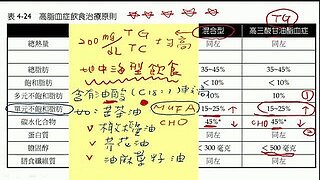 表 4-24 高脂血症飲食治療原則
TG
混合型 高三酸甘油酯血症
200 mg/dL TC 均高
總熱量 同左 同左
地中海型飲食
總脂肪 35~45% 35~45%
飽和脂肪 < 10% < 10%
含有油酸 (C18:1)
多元不飽和脂肪 10% 10% ②
單元不飽和脂肪 MUFA 15~25% ↑ 15~25% ↑ ①
碳水化合物 CHO 45%* ↓ CHO 45%* ↓
如:苦茶油
蛋白質 同左 同左
橄欖油
膽固醇 < 300 毫克 < 500 毫克
芥花油
鈉食鹽纖維質 同左 同左
油麻菜籽油